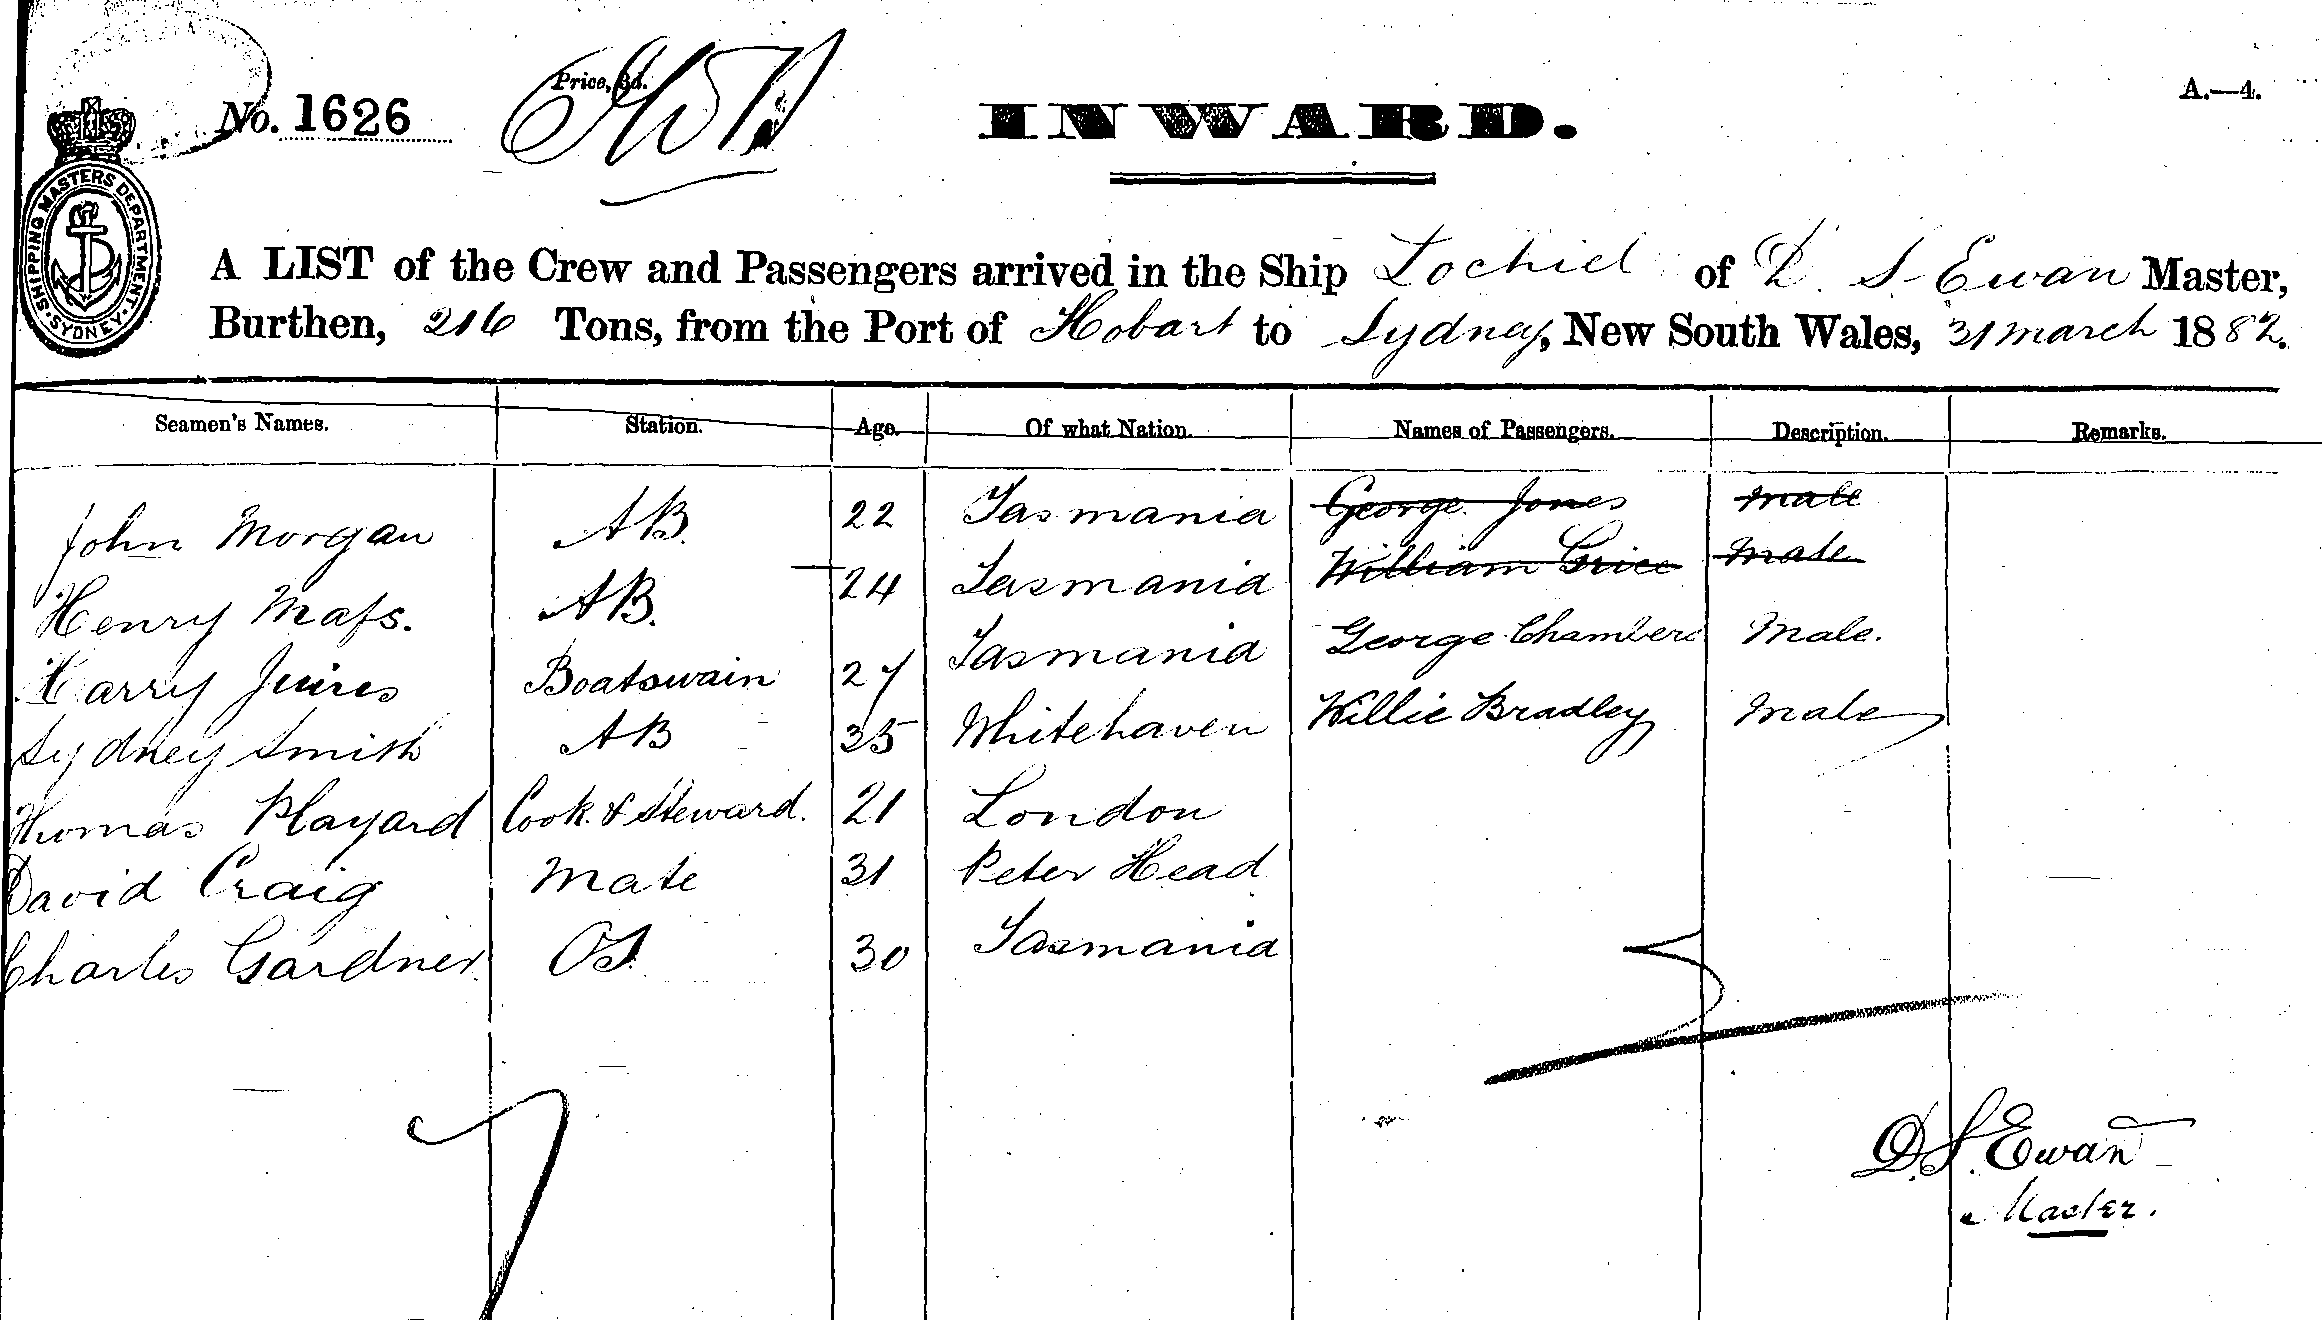 No. 1626
Price, 3d.
INWARD.
A.—4.
SHIPPING MASTERS DEPARTMENT. SYDNEY.
A LIST of the Crew and Passengers arrived in the Ship Lochiel of D. S. Ewan Master,
Burthen, 216 Tons, from the Port of Hobart to Sydney, New South Wales, 31 March 1882.
Seamen's Names. Station. Age. Of what Nation. Names of Passengers. Description. Remarks.
John Morgan AB. 22 Tasmania George Jones Male
Henry Mass. AB. 24 Tasmania William Grice Male
Harry Boatswain 27 Tasmania George Chambers Male.
Sydney Smith AB 35 Whitehaven Willie Bradley Male
Thomas Playard Cook & Steward. 21 London
David Craig Mate 31 Peter Head
Charles Gardner OS. 30 Tasmania
7
D. S. Ewan
Master.